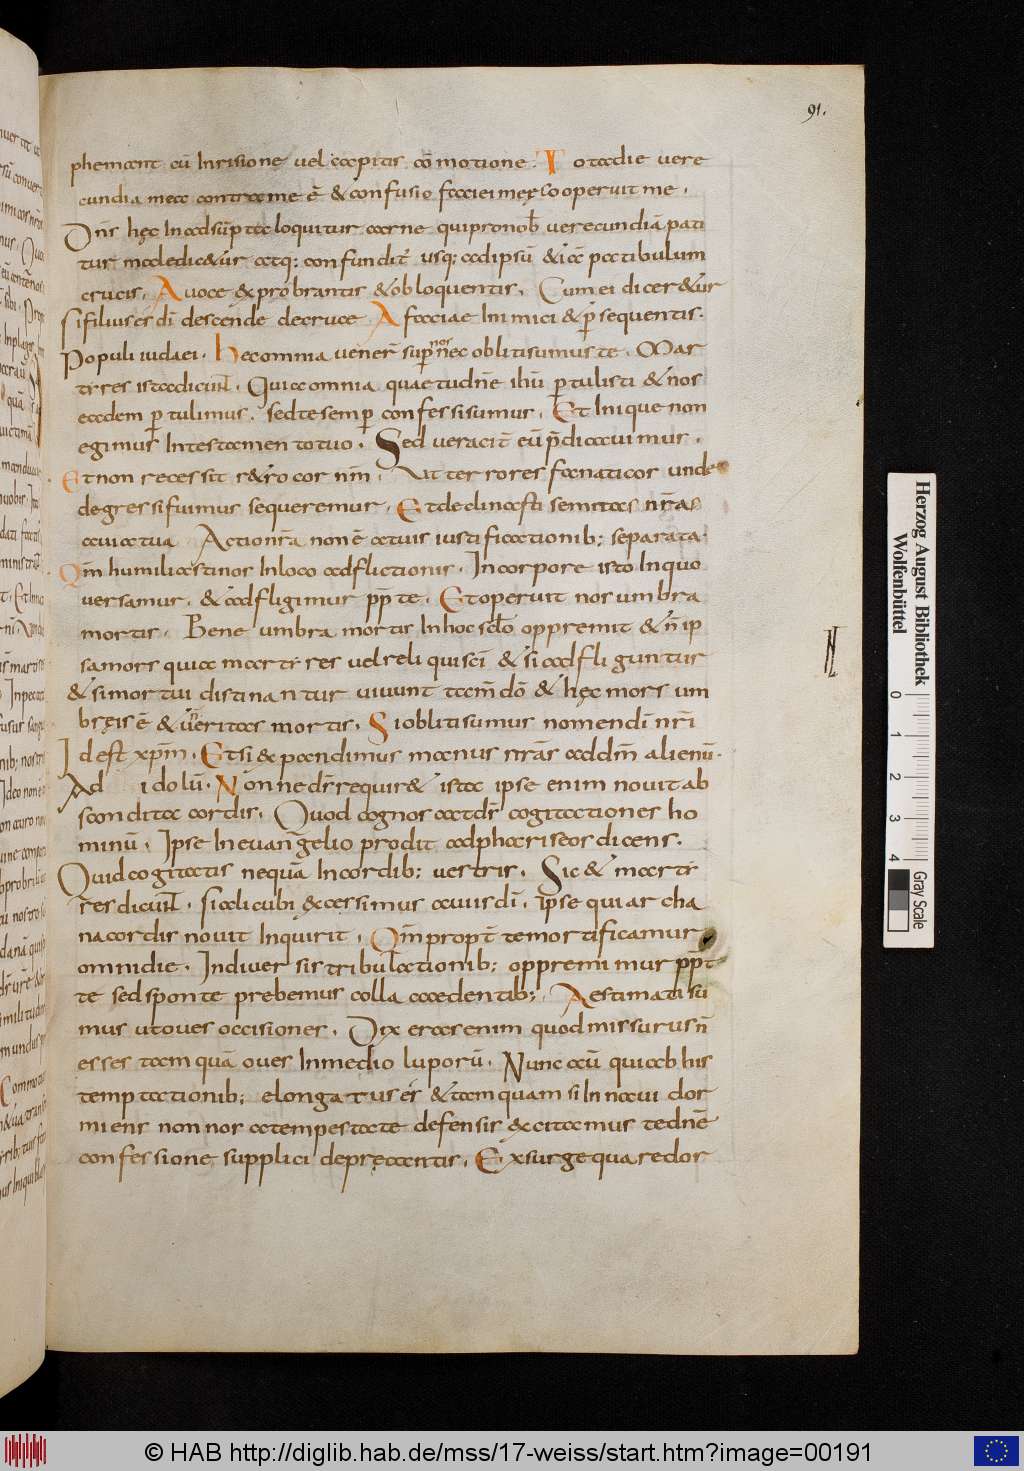 91.
phemant cū Inrisione vel capitis cō motione. Tota die vere
cundia mea contra me ē & confusio faciei meę co operuit me.
Dn̄s hęc In adsūpta loquitur carne qui pro nob̄ verecundiā pati
tur maledic&ur atq; confundit̄ usq; ad ipsū &iā patibulum
crucis. A voce exprobrantis & obloquentis. Cum ei dicer&ur
si filius es dī descende de cruce A faciae Inimici & p̄sequentis.
Populi iudaei. Hec omnia vener̄ sup̄ nos nec obliti sumus te. Mar
tires ista dicunt. Quia omnia quae tu dn̄e ih̄u p̄tulisti & nos
eadem p̄tulimus. sed te semp̄ confessi sumus. Et Inique non
egimus In testamento tuo. Sed veracit̄ eū p̄dicavimus.
Et non recessit r&ro cor nr̄m. Ut terrores fornaticor unde
degressi fuimus sequeremur. Et declinasti semitas nr̄as
a via tua Actio nr̄a non ē a tuis iustificationib; separata.
Qm̄ humiliasti nos In loco adflictionis. In corpore isto In quo
versamur. & adfligimur pp̄ te. Et operuit nos umbra
mortis. Bene umbra mortis In hoc sclo oppremit & n̄ ip
sa mors quia martires vel reliqui sc̄i & si adfliguntur
& si mortui distinantur vivunt tam̄ dō & hęc mors um
bra is ē & n̄ veritas mortis. Si obliti sumus nomen dī nr̄i
Id est xp̄m. Et si expandimus manus nr̄as ad dm̄ alienū.
Ad idolū. Nonne ds̄ requir& ista ipse enim novit ab
scondita cordis. Quod cognoscat ds̄ cogitationes ho
minū. Ipse In evangelio prodit ad phariseos dicens.
Quid cogitatis nequā In cordib; vestris. Sic & marti
res dicunt. si alicubi excessimus a viis dī. Ipse qui archa
na cordis novit Inquirit. Qm̄ propt̄ te mortificamur
omni die. In diversis tribulationib; oppremimur pp̄t
te sed sponte prebemus colla caedentib; Aestimati su
mus ut oves occisiones. Dixeras enim quod missurus n̄
esses tamquā oves In medio luporū. Nunc aū quia ab his
temptationib; elongatus es & tamquam si In navi dor
miens non nos a tempestate defensis excitamus te dn̄e
confessione supplici deprecantes. Exsurge quare dor
Herzog August Bibliothek
Wolfenbüttel
0 1 2 3 4
Gray Scale
© HAB http://diglib.hab.de/mss/17-weiss/start.htm?image=00191